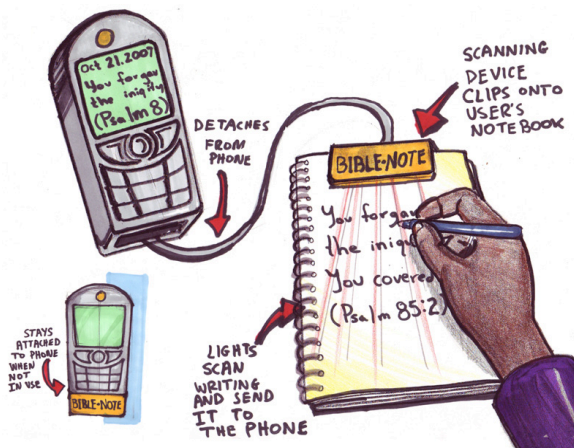 Oct 21.2007
You forgav
the iniqity
(Psalm 8)
DETACHES
FROM
PHONE
SCANNING
DEVICE
CLIPS ONTO
USER'S
NOTEBOOK
BIBLE-NOTE
You forgav
the iniqu
You covered
(Psalm 85:2)
STAYS
ATTACHED
TO PHONE
WHEN
NOT
IN USE
BIBLE-NOTE
LIGHTS
SCAN
WRITING
AND SEND
IT TO
THE PHONE